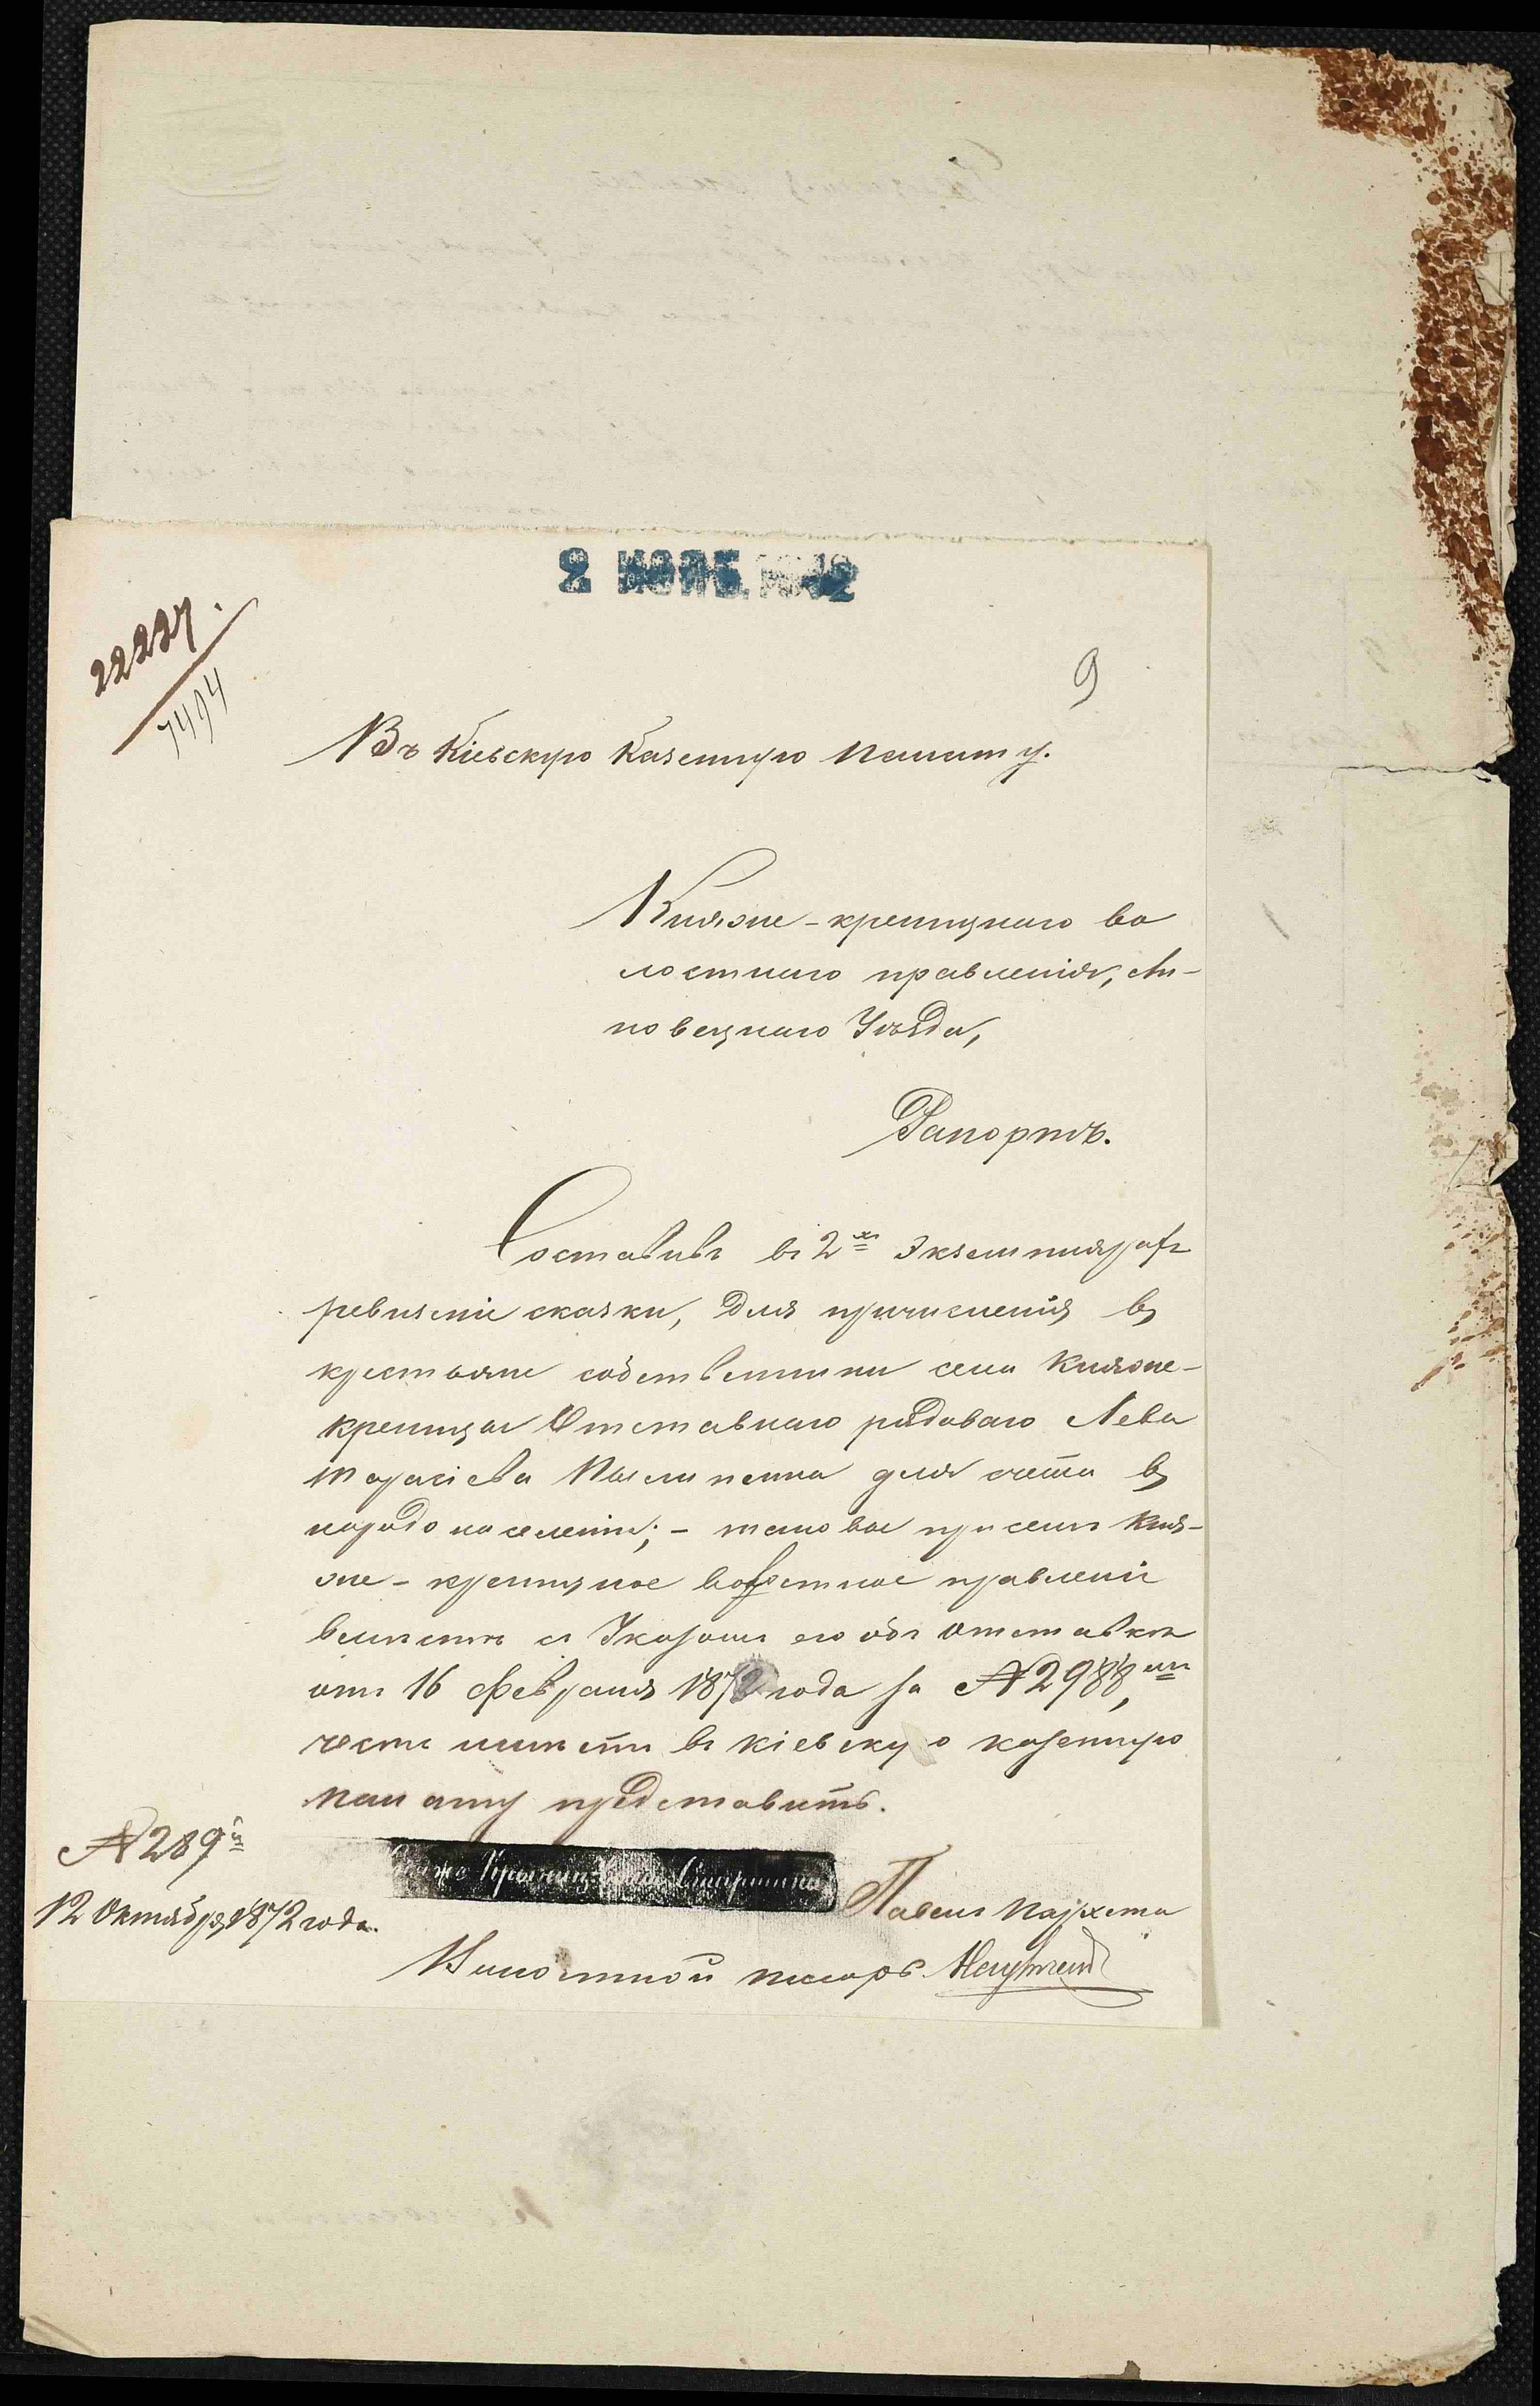 2 НОЯБ. 1872
22227.
7494
9
Въ Кіевскую Казенную Палату.
Княже-крыницкаго во
лостнаго правленія, Ли-
повецкаго Уѣзда,
Рапортъ.
Составивъ въ 2хъ Экземплярахъ
ревизскіе сказки, для причисленія въ
крестьяне собственники села Княже-
крыницы Отставнаго рядоваго Лева
Тарасіева для счета въ
народонаселеніи; - таковые при семъ Кня-
же-крыницкое волостное правленіе
вмѣстѣ съ Указомъ его объ отставкѣ
отъ 16 Февраля 1872 года за № 2988,мъ
честь имѣетъ въ кіевскую казенную
палату представить.
№ 289й
Княже Крыницкій Старшина Павелъ
12 Октября 1872 года.
Волостной писарь